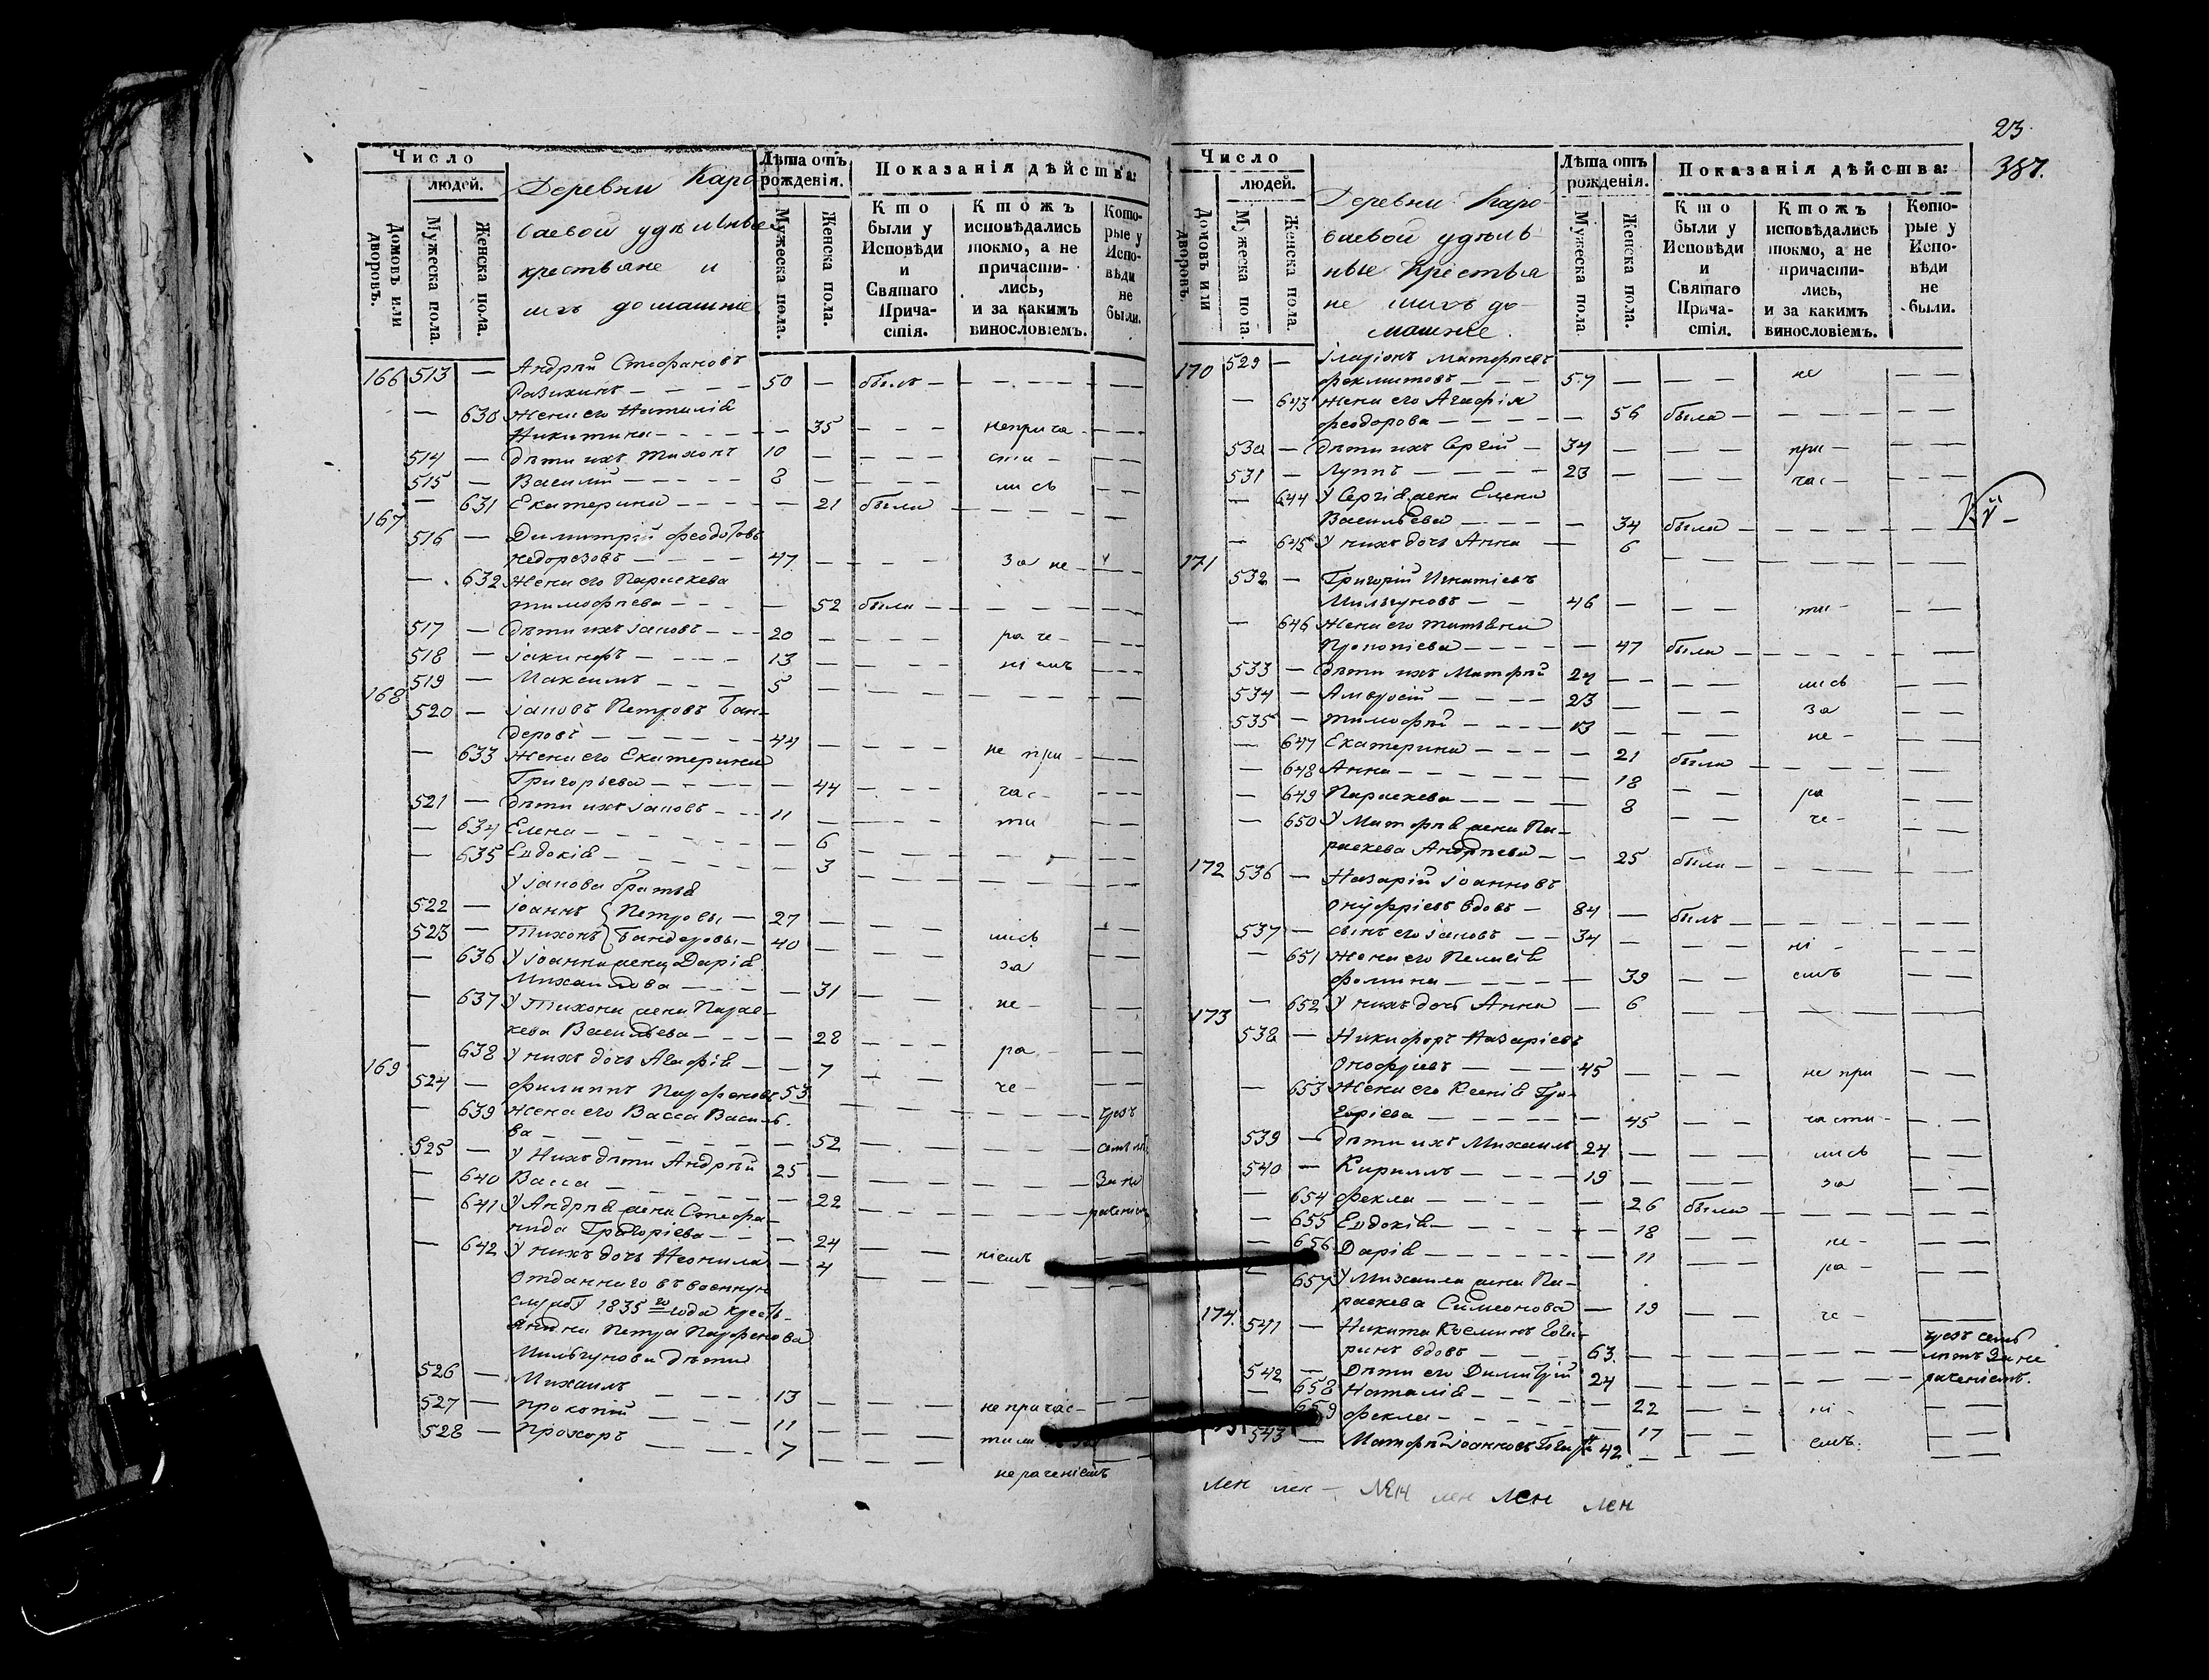 Число
людей.
Домовъ или дворовъ.
Мужеска пола.
Женска пола.
Деревни Каро
баевой удѣльные
крестьяне и
ихъ домашніе
Лѣта отъ рожденія.
Мужеска пола.
Женска пола.
Показанія дѣйства:
Кто были у Исповѣди и Святаго Причастія.
Ктожъ исповѣдались токмо, а не причастились, и за какимъ винословіемъ.
Которые у Исповѣди не были.
166 513 — Андрей Стефановъ
— — — 50 — былъ — — — —
— 630 Жена его Наталія
Никитина — — — — 35 — — — неприча — — —
514 — дѣти ихъ Тихонъ 10 — — — — сти — — —
515 — Василій — — — 8 — — — — лись — —
— 631 Екатерина — — — — 21 была — — — —
167 516 — Димитрій Феодотовъ
Недорезовъ — — — 47 — — — — за не — — —
— 632 Жена его Параскева
Тимофеева — — — — 52 была — — — —
517 — дѣти ихъ Іаковъ — — 20 — — — — раче — — —
518 — Іакинфъ — — — 13 — — — — ніемъ — — —
519 — Максимъ — — — 5 — — — — — —
168 520 — Іаковъ Петровъ Бан-
деровъ — — — — 44 — — — — не при — — —
— 633 Жена его Екатерина
Григорьева — — — — 44 — — — час — — — —
521 — дѣти ихъ Іаковъ — — 11 — — — — ти — — —
— 634 Елена — — — — — 6 — — — — —
— 635 Евдокія — — — — — 3 — — — — —
У Іакова братья
522 — Іоаннъ } Петровы — 27 — — — — —
523 — Тихонъ } Бандеровы — 40 — — — лись — —
— 636 У Іоанна жена Дарія
Михайлова — — — — 31 — — за — —
— 637 У Тихона жена Парас-
кева Васильева — — — — 28 — — — не — — —
— 638 У нихъ дочь Агафія — — 7 — — ра — — —
169 524 — Филиппъ Парфеновъ 53. — — — че — — —
— 639 Жена его Васса Василь-
ва — — — — — 52 — — — — чрезъ
525 — У Нихъ дѣти Андрей 25 — — — — — семь
— 640 Васса — — — — — 22 — — — — За не
— 641 У Андрея жена Стефа-
нида Григоріева — — — 24 — — — — раченіемъ
— 642 У нихъ дочь Неонила — 4 — — ніемъ — —
Отданнаго въ военную
службу 1835 го года кресть-
янина Петра Парфенова
Мильгунова дѣти
526 — Михаилъ — — — 13 — — — — — —
527 — Прокопій — — — 11 — — — — не причас-
528 — Прохоръ — — — 7 — — — —
нераченіемъ
23.
387.
Число
людей.
Домовъ или дворовъ.
Мужеска пола
Женска пола.
Деревни Каро-
баевой удѣль-
ные Крестья
не ихъ до
машніе.
Лѣта отъ рожденія.
Мужеска пола
Женска пола.
Показанія дѣйства:
Кто были у Исповѣди и Святаго Причастія.
Ктожъ исповѣдались токмо, а не причастились, и за какимъ винословіемъ.
Которые у Исповѣди не были.
170 529 — Іларіонъ Матфеевъ
— — — 57 — — — не — —
— 643 Жена его Агафія
Феодорова — — — — 56 была — — — —
530 — дѣти ихъ Сергій — 34 — — — при — — —
531 — Луппъ — — — 23 — — — час — — —
— 644 У Сергія жена Елена
Васильева — — — — 34 была — — — —
— 645 У нихъ дочь Анна — 6 — — — — —
171 532 — Григорій Игнатіевъ
Мильгуновъ — — 46 — — — ти — — —
— 646 Жена его Татьяна
Прокопіева — — — — 47 была — — — —
533 — дѣти ихъ Матфей 24 — — — — лись — —
534 — Амвросій — — — 23 — — — за — —
535 — Тимофей — — — 13 — — — не — — —
— 647 Екатерина — — — — 21 была — — — —
— 648 Анна — — — — — 18 — — ра — —
— 649 Параскева — — — — 8 — — че — — —
— 650 У Матфея жена Па-
раскева Андреева — — 25 была — — — —
172 536 — Назарій Іоанновъ
Онуфріевъ вдовъ — 84 — былъ — — — —
537 — сынъ его Іаковъ — — 34 — — — ні — — —
— 651 Жена его Пелагія
Фомина — — — — — 39 — — емъ — —
— 652 У нихъ дочь Анна — 6 — — — — —
173 538 — Никифоръ Назаріевъ
Онофріевъ — — — 45 — — — не при — —
— 653 Жена его Ксенія Гри-
горіева — — — — — 45 — — части — — —
539 — дѣти ихъ Михаилъ 24 — — — лись — —
540 — Кириллъ — — — 19 — — — за — —
— 654 Фекла — — — — — 26 была — — — —
— 655 Евдокія — — — — — 18 — — не — — —
— 656 Дарія — — — — — 11 — — ра — — —
— 657 У Михаила жена Па-
раскева Симеонова — 19 — — че — — —
174. 541 — Никита Козминъ
вдовъ — — — 63. — — — — — чрезъ семь
542 — Дѣти его Димитрій 24 — — — — лѣтъ За не
— 658 Наталія — — — — 22 — — ні — раченіемъ.
659 Фекла — — — — 17 — — емъ. — —
543 — Матфей Іоанновъ 42 — — — —
лен лен — ЛЕН лен лен лен